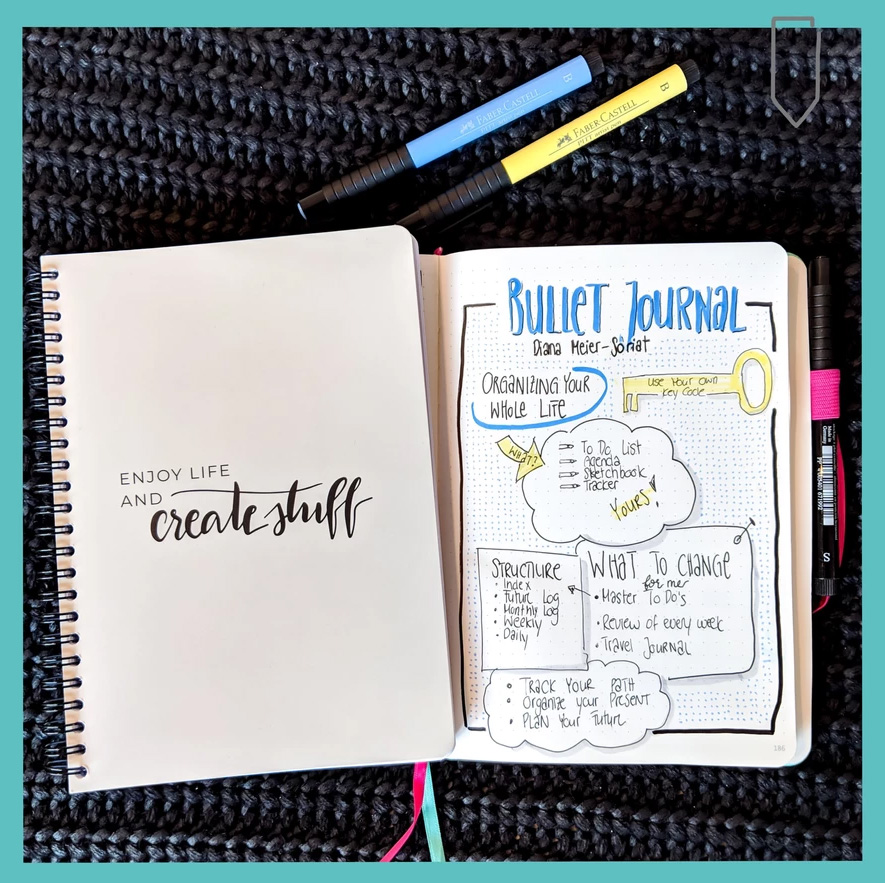 B
FABER CASTELL
PITT artist pen
B
FABER CASTELL
PITT artist pen
ENJOY LIFE
AND create stuff
BULLET JOURNAL
Diana Meier-Soriat
ORGANIZING YOUR
WHOLE LIFE
USE YOUR OWN
Key Code
WHAT?
To Do List
Agenda
Sketchbook
Tracker
YOURS!
STRUCTURE
• Index
• Future Log
• Monthly Log
• Weekly
• Daily
WHAT TO CHANGE
for me
• Master To Do's
• Review of every week
• Travel Journal
• TRACK YOUR PATH
• Organize your PRESENT
• PLAN Your Future
186
Made in
Germany
S